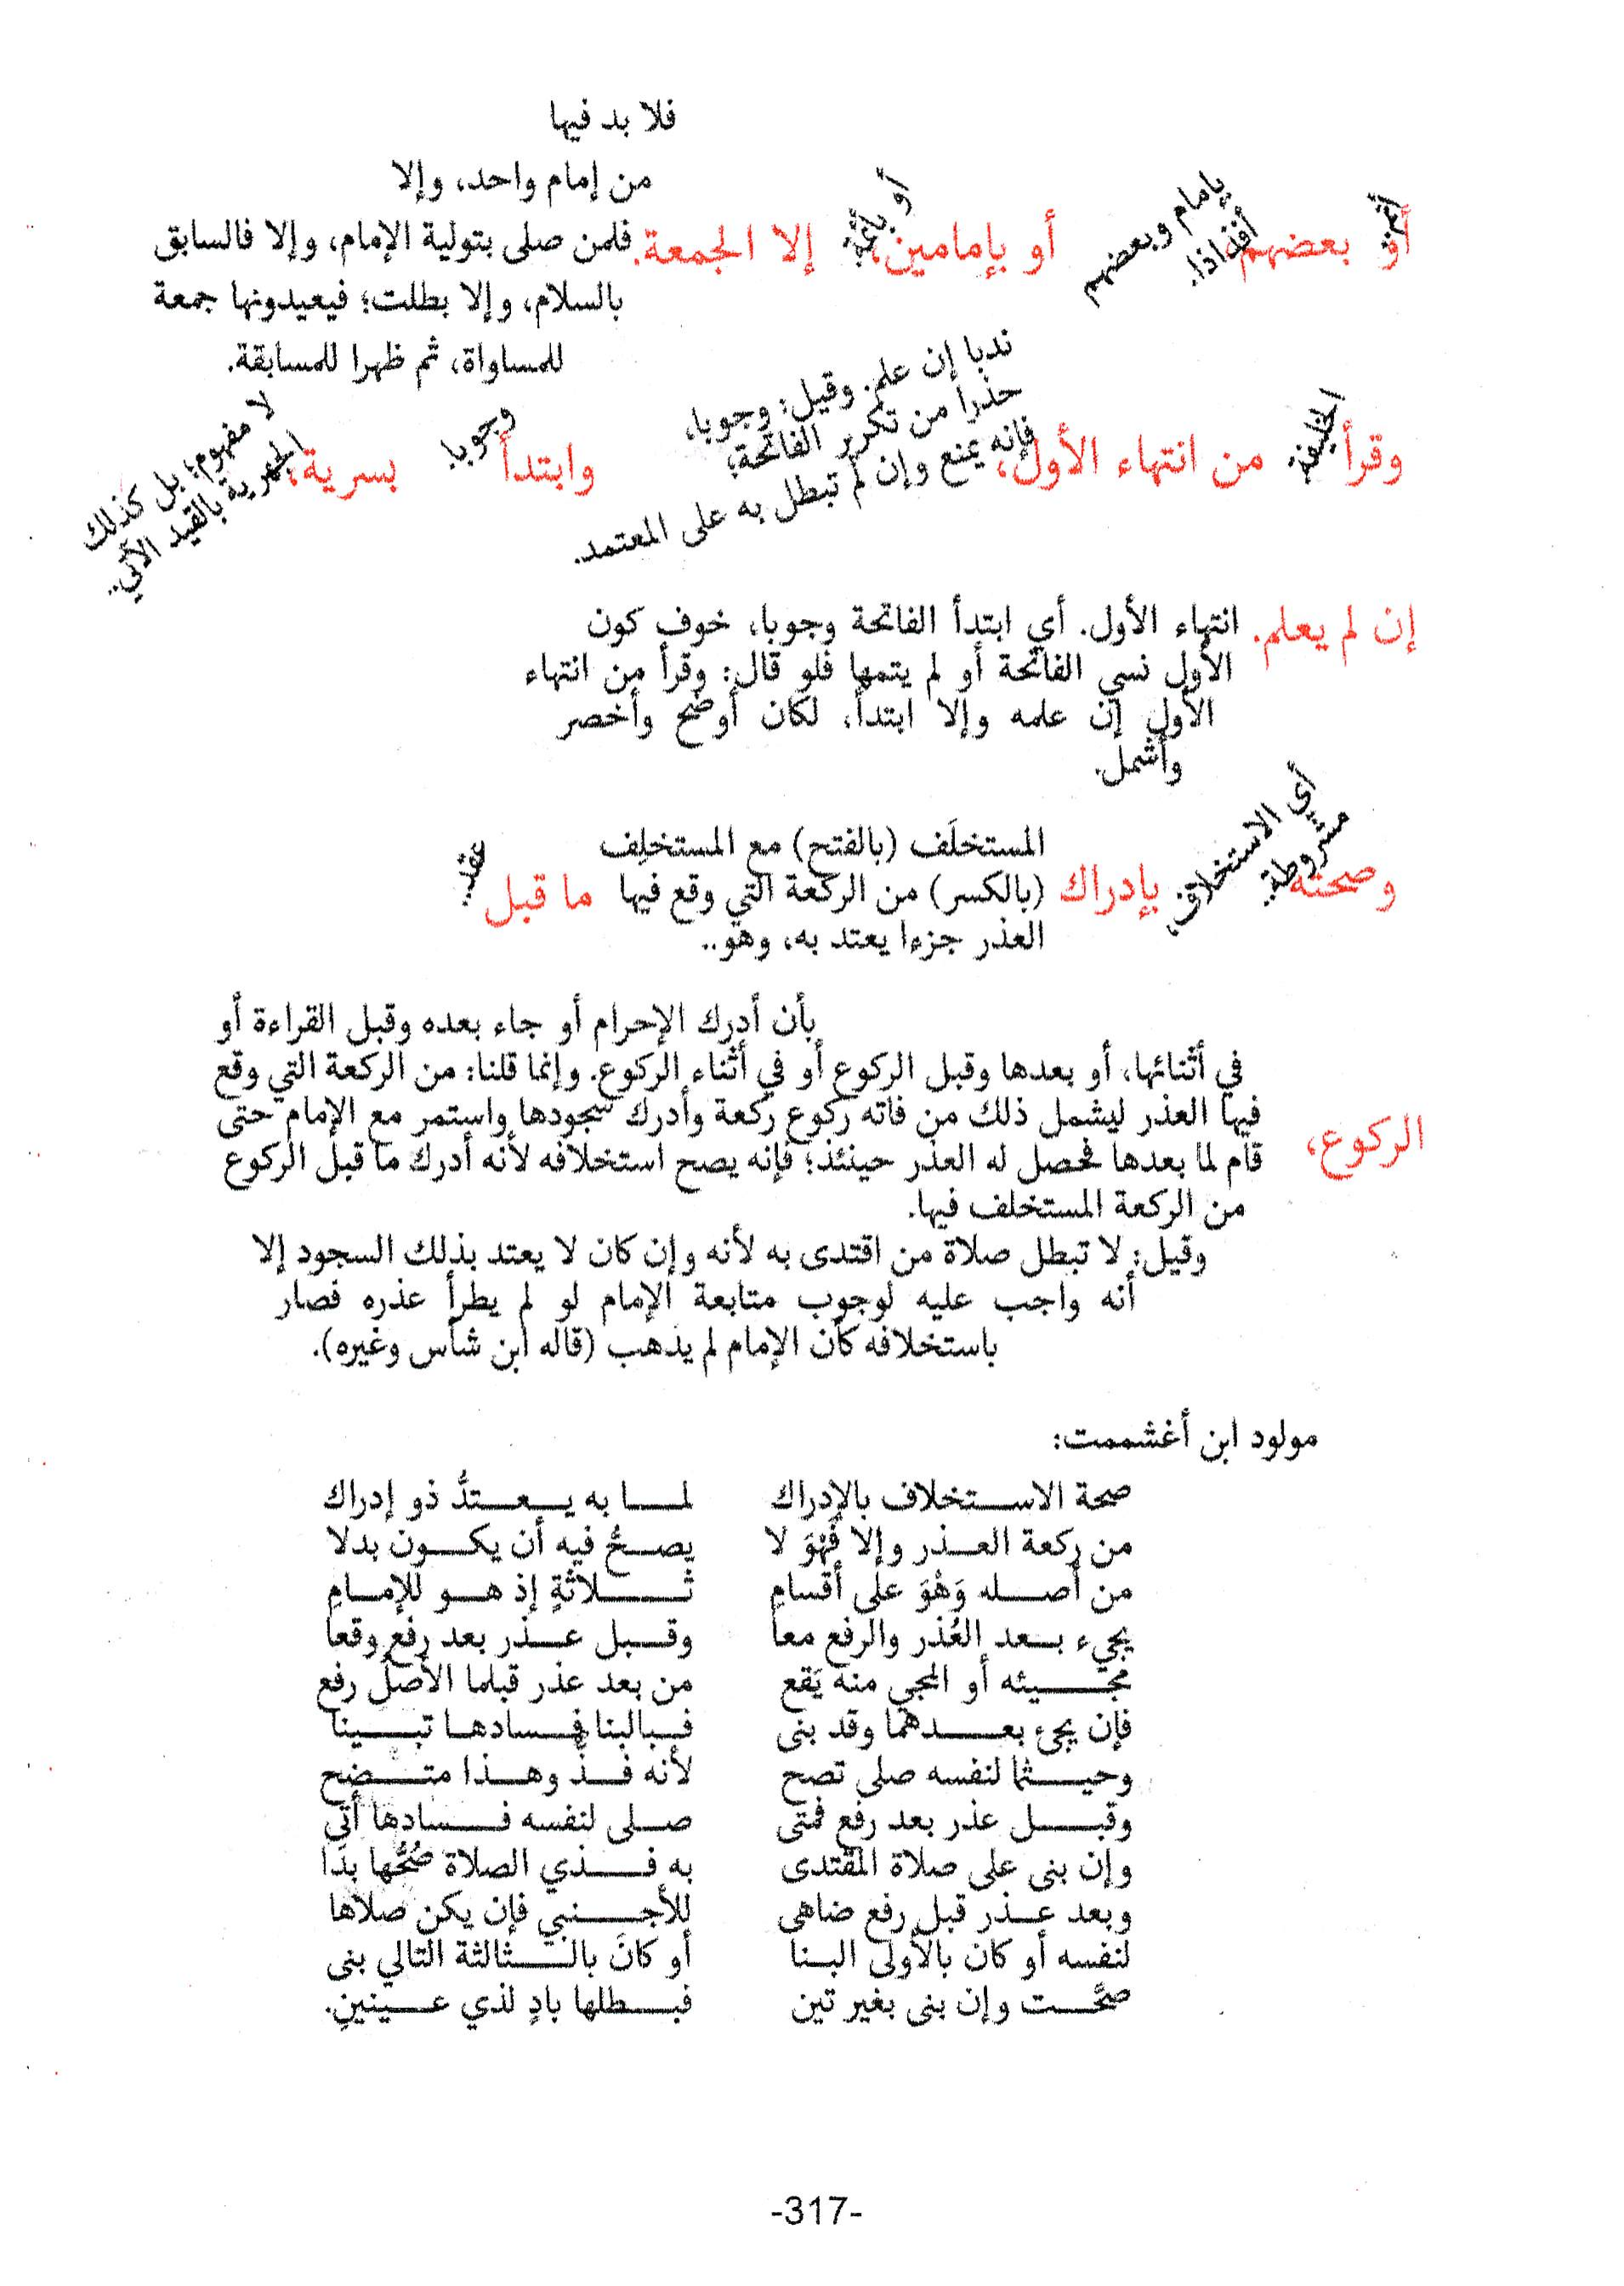 فلا بد فيها
من إمام واحد، وإلا
أو أتم بعضهم بإمام وبعضهم أفذاذا. أو بإمامين، أو بأئمة إلا الجمعة. فلمن صلى بتولية الإمام، وإلا فالسابق
بالسلام، وإلا بطلت؛ فيعيدونها جمعة
للمساواة، ثم ظهرا للمسابقة.
وقرأ الخليفة من انتهاء الأول، ندبا إن علم. وقيل: وجوبا، حذرا من تكرير الفاتحة، فإنه يمنع وإن لم تبطل به على المعتمد. وابتدأ وجوبا. بسرية؛ لا مفهوم؛ بل كذلك الجهرية بالقيد الآتي..
إن لم يعلم. انتهاء الأول. أي ابتدأ الفاتحة وجوبا، خوف كون
الأول نسي الفاتحة أو لم يتمها فلو قال: وقرأ من انتهاء
الأول إن علمه وإلا ابتدأ، لكان أوضح وأخصر
وأشمل.
وصحته أي الاستخلاف، مشروطة. بإدراك المستخلَف (بالفتح) مع المستخلِف
(بالكسر) من الركعة التي وقع فيها ما قبل عقد..
العذر جزءا يعتد به، وهو..
بأن أدرك الإحرام أو جاء بعده وقبل القراءة أو
في أثنائها، أو بعدها وقبل الركوع أو في أثناء الركوع. وإنما قلنا: من الركعة التي وقع
الركوع، فيها العذر ليشمل ذلك من فاته ركوع ركعة وأدرك سجودها واستمر مع الإمام حتى
قام لما بعدها فحصل له العذر حينئذ؛ فإنه يصح استخلافه لأنه أدرك ما قبل الركوع
من الركعة المستخلف فيها.
وقيل: لا تبطل صلاة من اقتدى به لأنه وإن كان لا يعتد بذلك السجود إلا
أنه واجب عليه لوجوب متابعة الإمام لو لم يطرأ عذره فصار
باستخلافه كأن الإمام لم يذهب (قاله ابن شأس وغيره).
مولود ابن أغشممت:
صحة الاستخلاف بالإدراك لما به يعتدُّ ذو إدراك
من ركعة العذر وإلا فَهْوَ لا يصحُّ فيه أن يكون بدلا
من أصله وَهْوَ على أقسامِ ثلاثةٍ إذ هو للإمامِ
يجيء بعد العُذر والرفع معا وقبل عذر بعد رفع وقعا
مجيئه أو المجي منه يَقع من بعد عذر قبلما الأصل رفع
فإن يجئ بعدهما وقد بنى فبالبنا فسادها تبينا
وحيثما لنفسه صلى تصح لأنه فذٌّ وهذا متضح
وقبل عذر بعد رفع فمتى صلى لنفسه فسادها أتى
وإن بنى على صلاة المقتدى به فذي الصلاة صُحُّها بدَا
وبعد عذر قبل رفع ضاهى للأجنبي فإن يكن صلاها
لنفسه أو كان بالأولى البنا أو كانَ بالثالثة التالي بنى
صحَّت وإن بنى بغير تين فبطلها بادٍ لذي عينينِ.
-317-